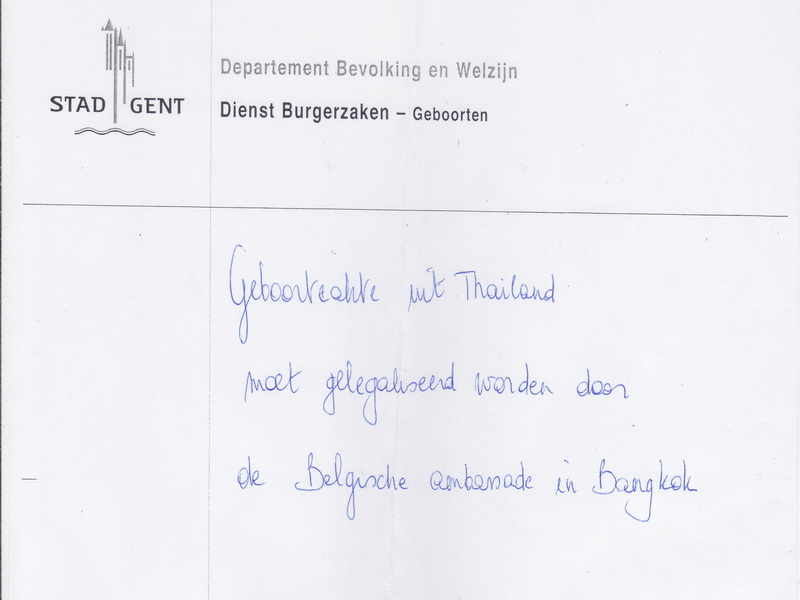 STAD GENT
Departement Bevolking en Welzijn
Dienst Burgerzaken – Geboorten
Geboorteakte uit Thailand
moet gelegaliseerd worden door
de Belgische ambassade in Bangkok